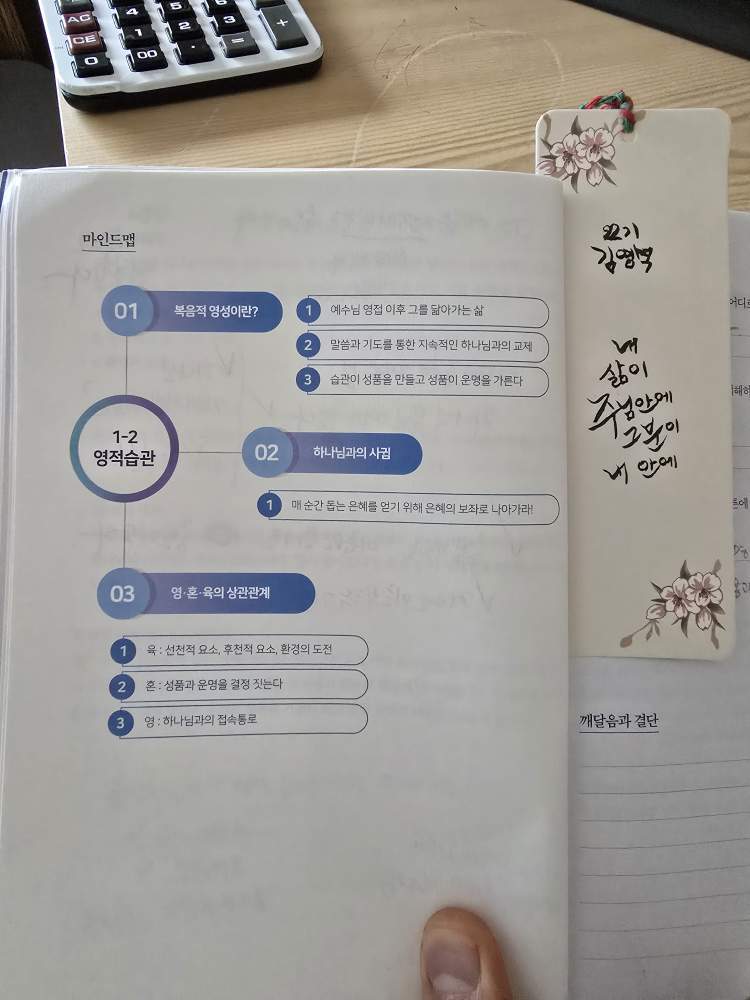 AC
4
5
6
CE
1
2
3
+
0
00
·
=
마인드맵
01 복음적 영성이란?
1 예수님 영접 이후 그를 닮아가는 삶
2 말씀과 기도를 통한 지속적인 하나님과의 교제
3 습관이 성품을 만들고 성품이 운명을 가른다
1-2
영적습관
02 하나님과의 사귐
1 매 순간 돕는 은혜를 얻기 위해 은혜의 보좌로 나아가라!
03 영·혼·육의 상관관계
1 육 : 선천적 요소, 후천적 요소, 환경의 도전
2 혼 : 성품과 운명을 결정 짓는다
3 영 : 하나님과의 접속통로
김영
내
삶이
주님안에
그분이
내 안에
깨달음과 결단